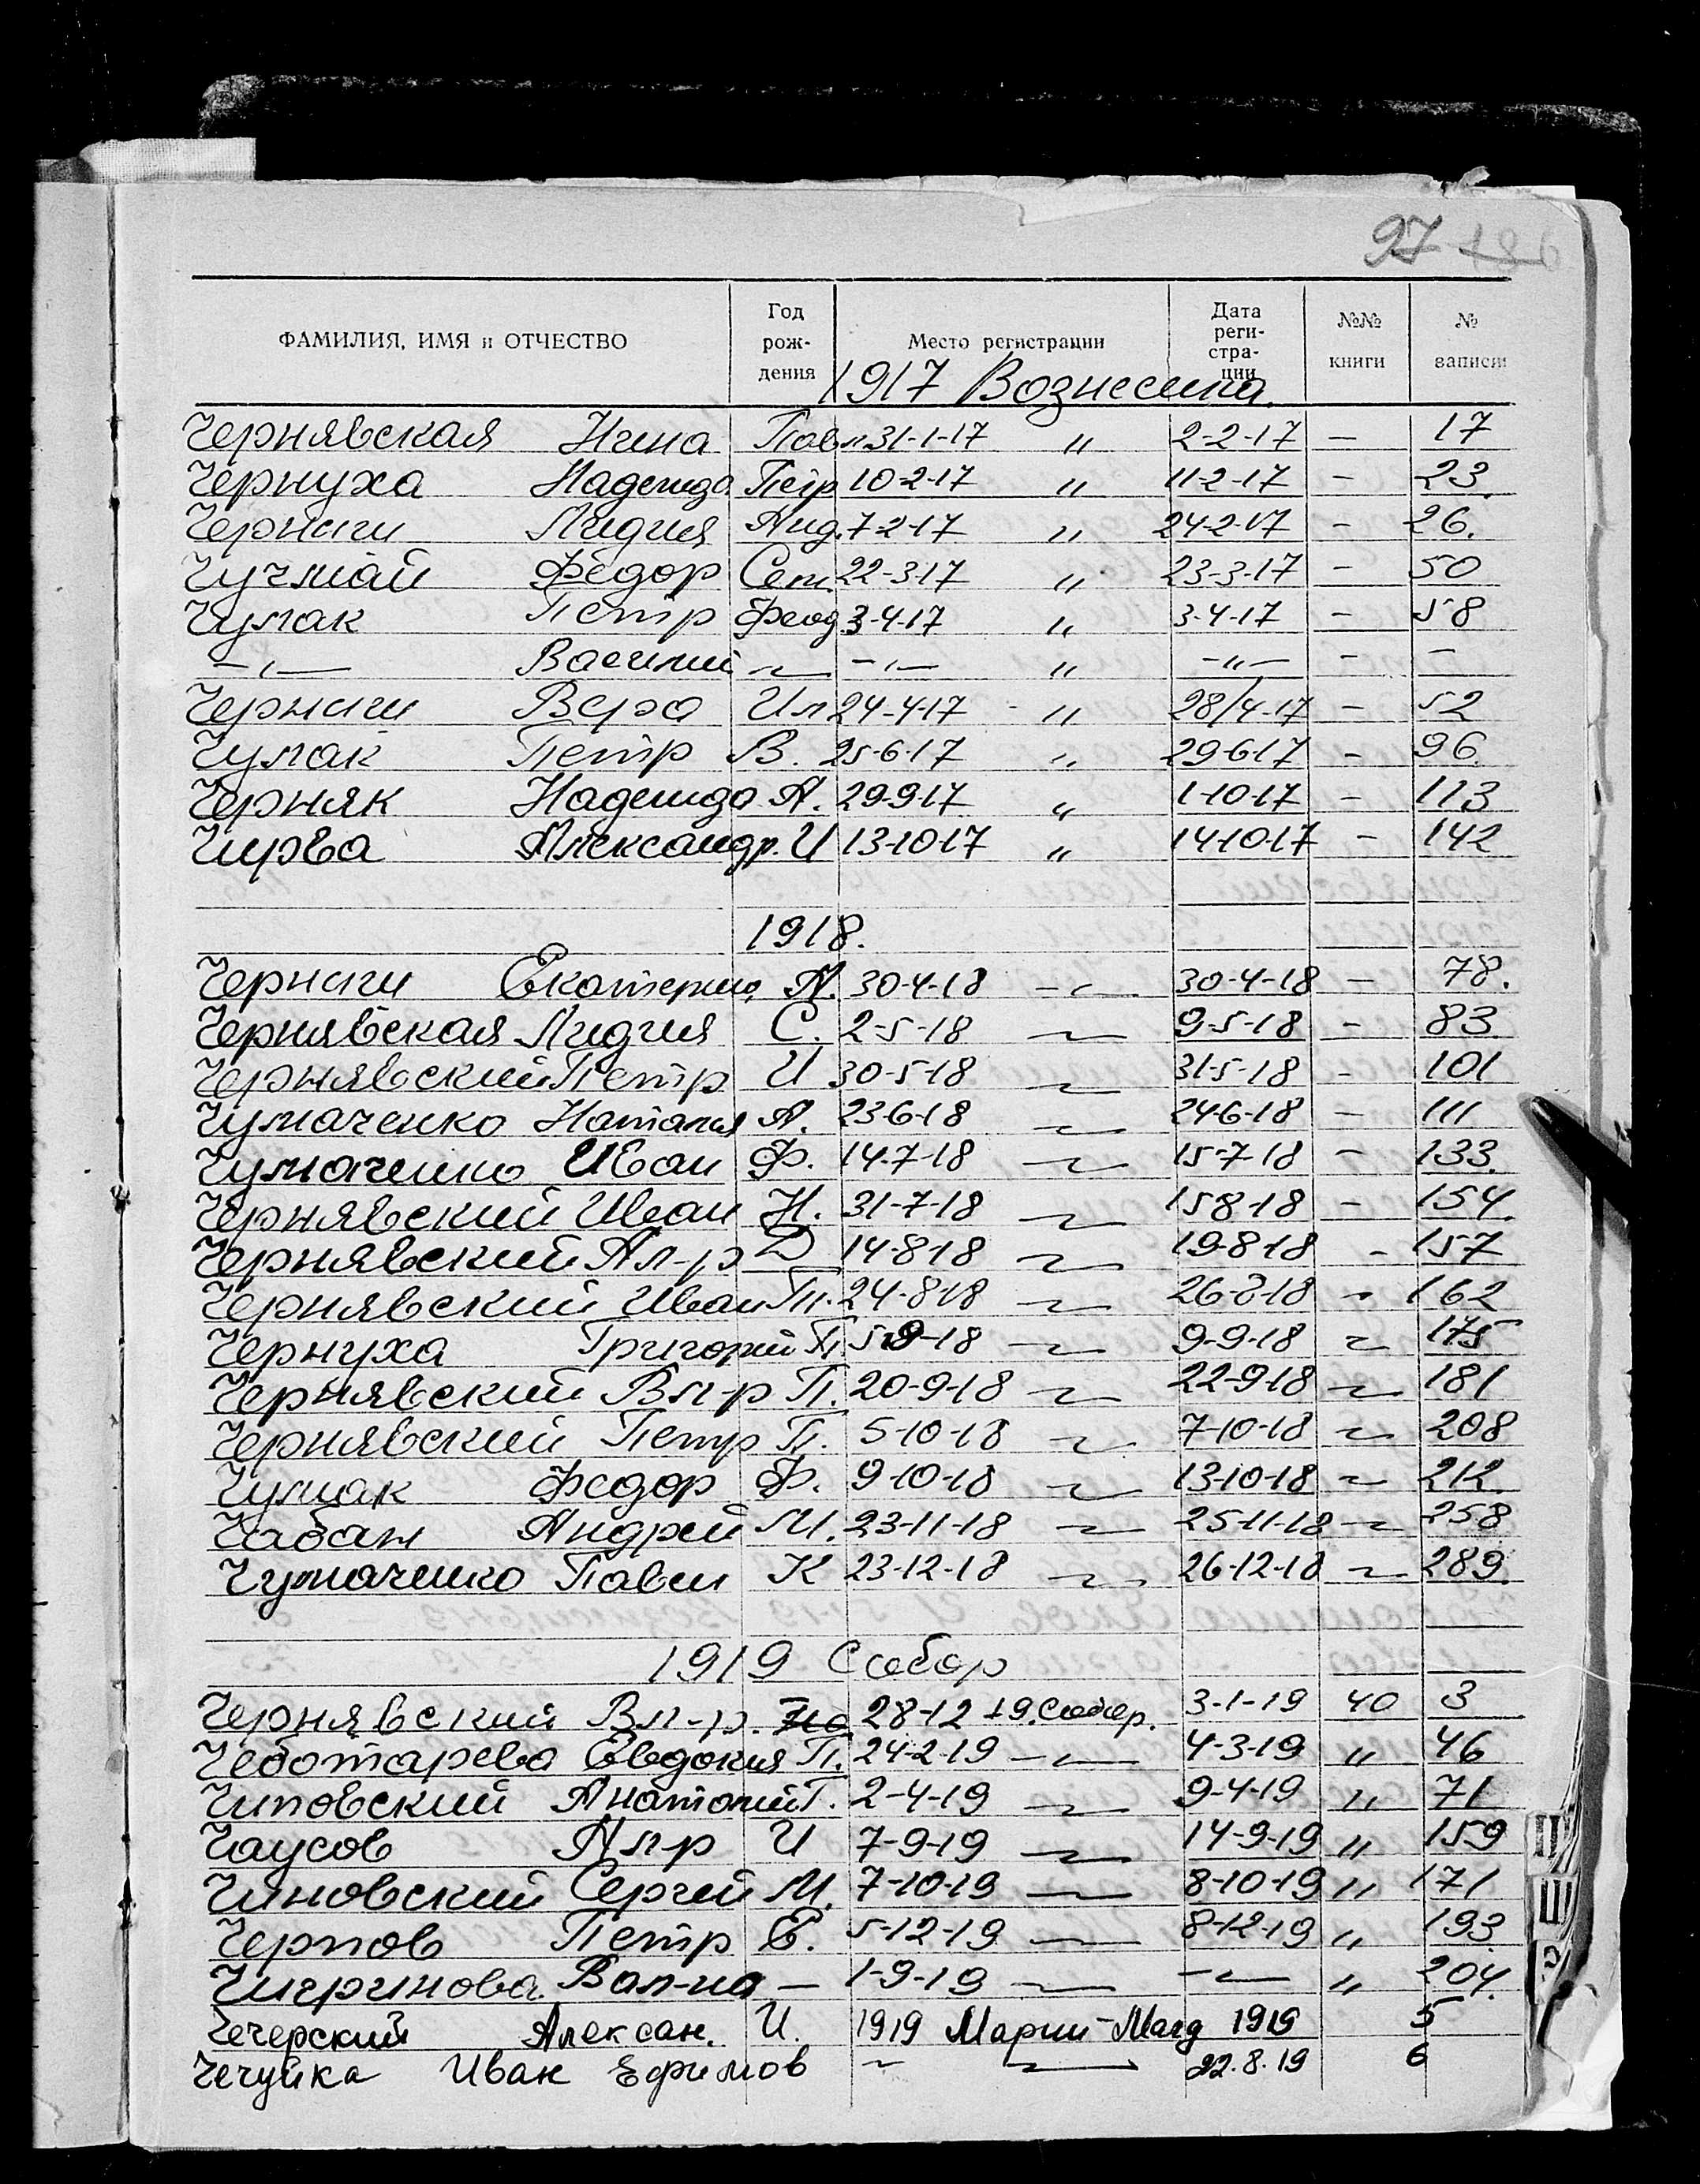 97 186
ФАМИЛИЯ, ИМЯ и ОТЧЕСТВО Год рождения Место регистрации Дата регистрации №№ книги № записи
1917 Вознесенка
Чернявская Нина Павл 31-1-17 " 2-2-17 - 17
Чернуха Надежда Петр 10-2-17 " 11-2-17 - 23
Черниги Лидия Анд. 7-2-17 " 24-2-17 - 26.
Чучмай Федор Сем. 22-3-17 " 23-3-17 - 50
Чумак Петр Феод 3-4-17 " 3-4-17 - 58
-"- Василий -"- -"- " -"- - -
Черниги Вера Ил 24-4-17 - " 28/4-17 - 52
Чумак Петр В. 25-6-17 " 29-6-17 - 96.
Черняк Надежда А. 29-9-17 " 1-10-17 - 113
Чирва Александр. И 13-10-17 " 14-10-17 - 142
1918.
Черниги Екатерина А. 30-4-18 -"- 30-4-18 - 78.
Чернявская Лидия С. 2-5-18 -"- 9-5-18 - 83
Чернявский Петр И 30-5-18 -"- 31-5-18 - 101
Чумаченко Наталья А. 23-6-18 -"- 24-6-18 - 111
Чумаченко Иван Ф. 14-7-18 -"- 15-7-18 - 133.
Чернявский Иван Н. 31-7-18 -"- 15-8-18 - 154.
Чернявский Ал-р Д 14-8-18 -"- 19-8-18 - 157
Чернявский Иван П. 24-8-18 -"- 26-8-18 - 162
Чернуха Григорий П. 5-9-18 -"- 9-9-18 -"- 175
Чернявский Вл-р П. 20-9-18 -"- 22-9-18 -"- 181
Чернявский Петр П. 5-10-18 -"- 7-10-18 -"- 208
Чумак Федор Ф. 9-10-18 -"- 13-10-18 -"- 212.
Чабан Андрей М. 23-11-18 -"- 25-11-18 -"- 258
Чумаченко Павел К 23-12-18 -"- 26-12-18 -"- 289.
1919 Собор
Чернявский Вл-р. 28-12 19. Собор. 3-1-19 40 3
Чеботарева Евдокия П. 24-2-19 -"- 4-3-19 " 46
Чиповский Анатолий Г. 2-4-19 -"- 9-4-19 " 71
Чаусов Ал-р И 7-9-19 -"- 14-9-19 " 159
Чиновский Сергей М. 7-10-19 -"- 8-10-19 " 171
Черпов Петр Е. 5-12-19 -"- 8-12-19 " 193
Чигринова Вал-на - 1-9-19 -"- -"- " 204.
Чечерский Алексан. И. 1919 Марии-Магд 1919 5
Чечуйка Иван Ефимов -"- -"- 22.8.19 6